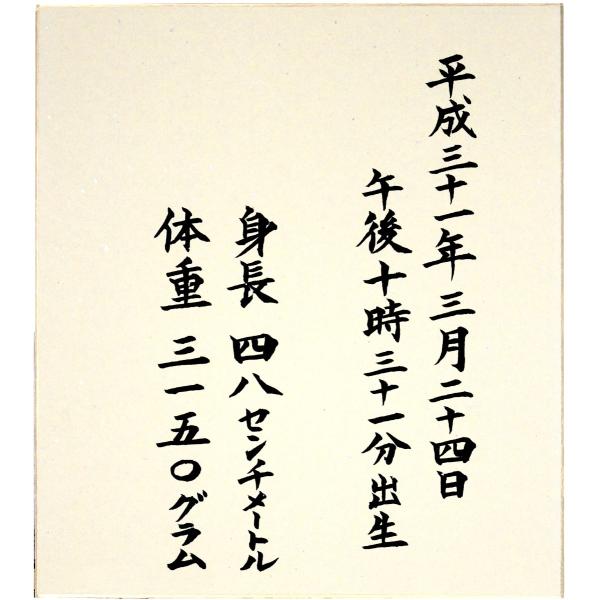 平成三十一年 三月二十四日
午後十時三十一分出生
身長 四八センチメートル
体重 三一五〇グラム